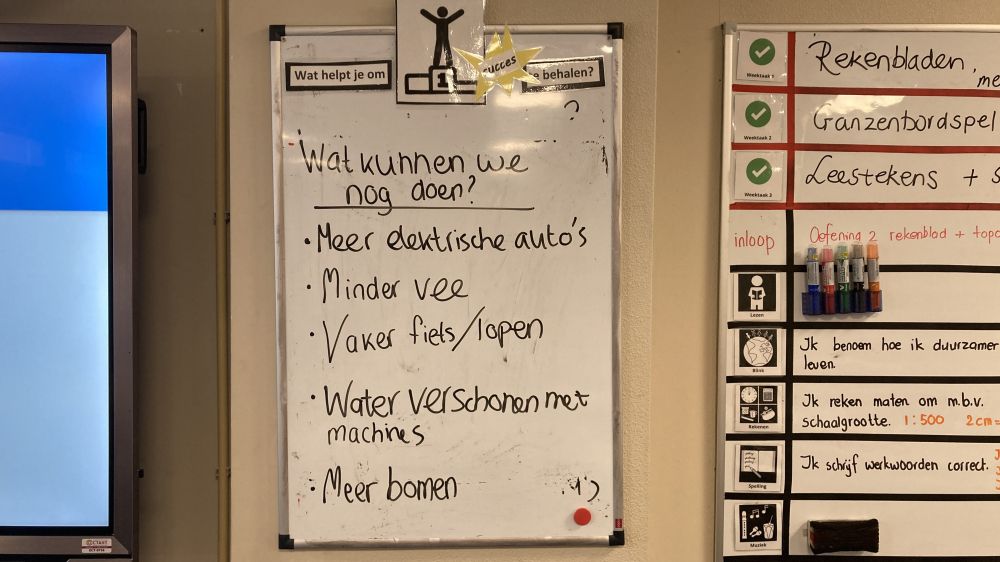 Wat helpt je om
1
succes
e behalen?
Wat kunnen we
nog doen?
• Meer elektrische auto's
• Minder vee
• Vaker fiets/lopen
• Water verschonen met
machines
• Meer bomen
OCTAVT
Weektaak 1
Rekenbladen,
me
Weektaak 2
Ganzenbordspel
Weektaak 3
Leestekens + s
inloop
Oefening 2 rekenblad + topo
Lezen
Blink
Ik benoem hoe ik duurzamer
leven.
Rekenen
Ik reken maten om m.b.v.
schaalgrootte. 1:500 2cm=
Spelling
Ik schrijf werkwoorden correct.
Muziek